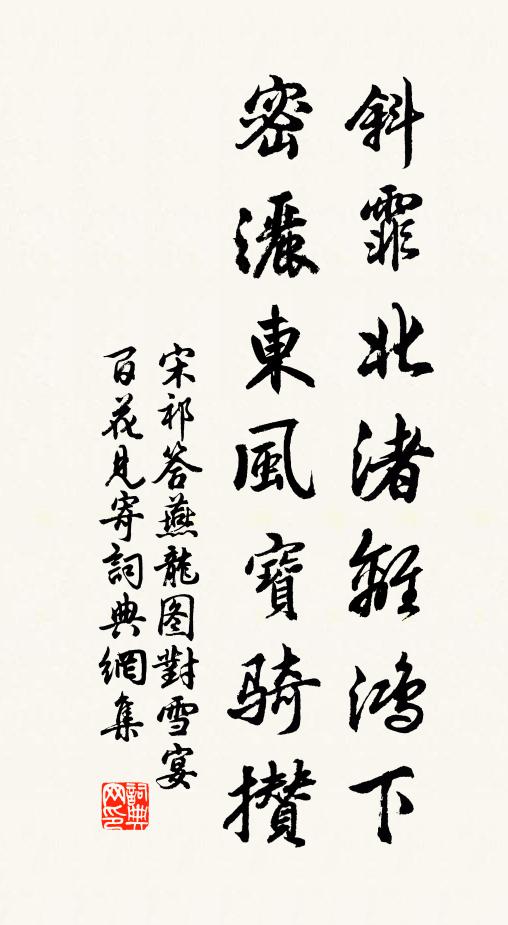 斜霏北渚離鴻下
密灑東風寶騎攢
宋祁答燕龍图對雪宴
百花見寄詞典網集
詞典
网印